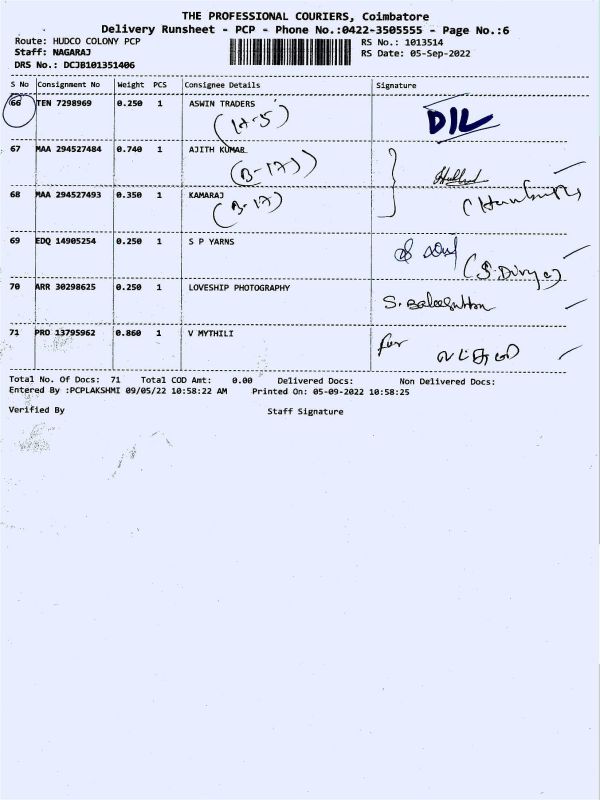 THE PROFESSIONAL COURIERS, Coimbatore
Delivery Runsheet - PCP - Phone No.:0422-3505555 - Page No.:6
Route: HUDCO COLONY PCP RS No.: 1013514
Staff: NAGARAJ RS Date: 05-Sep-2022
DRS No.: DCJB101351406
S No Consignment No Weight PCS Consignee Details Signature
66 TEN 7298969 0.250 1 ASWIN TRADERS
DIL
67 MAA 294527484 0.740 1 AJITH KUMAR
(B-17)
68 MAA 294527493 0.350 1 KAMARAJ
(B-17)
69 EDQ 14905254 0.250 1 S P YARNS
70 ARR 30298625 0.250 1 LOVESHIP PHOTOGRAPHY
71 PRO 13795962 0.860 1 V MYTHILI
for
Total No. Of Docs: 71 Total COD Amt: 0.00 Delivered Docs: Non Delivered Docs:
Entered By :PCPLAKSHMI 09/05/22 10:58:22 AM Printed On: 05-09-2022 10:58:25
Verified By Staff Signature